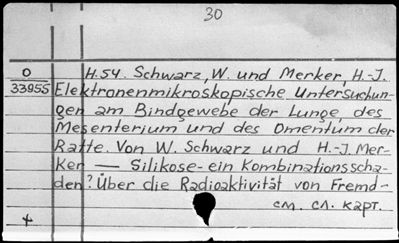 30
O H.54. Schwarz, W. und Merker, H.-J.
33955 Elektronenmikroskopische Untersuchun-
gen am Bindgewebe der Lunge, des
Mesenterium und des Omentum der
Ratte. Von W. Schwarz und H.-J. Mer-
ker — Silikose-ein Kombinationsscha-
den? Über die Radioaktivität von Fremd-
см. сл. карт.
4